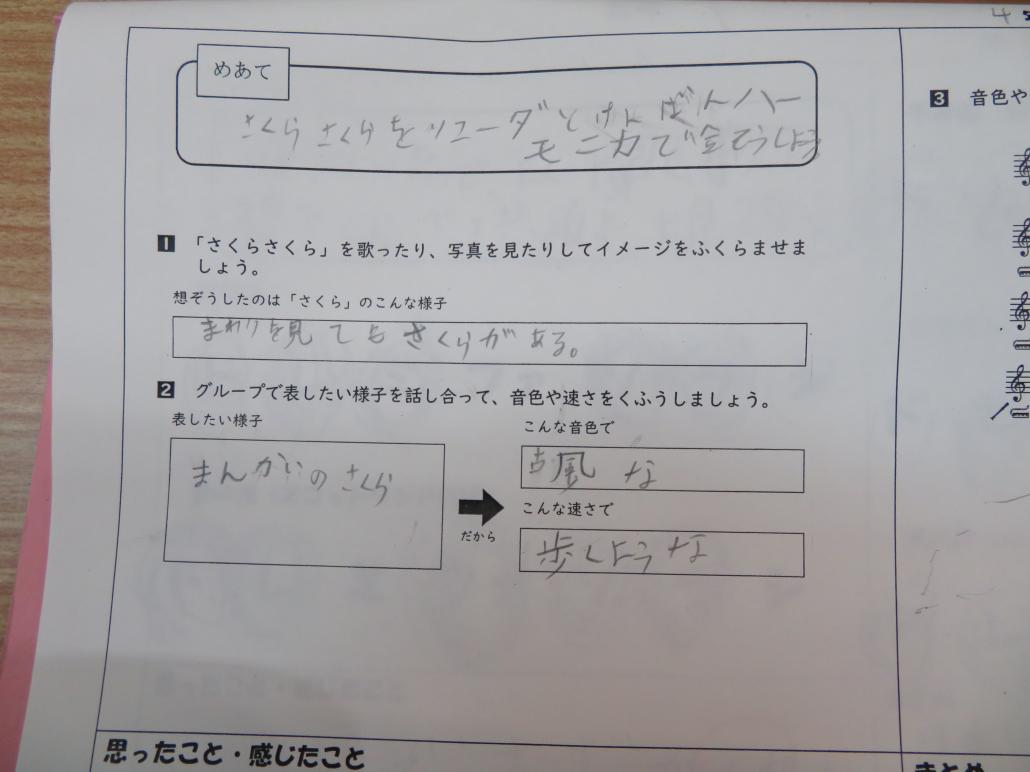 めあて
さくらさくらをリコーダとけんばんハー
モニカで
1 「さくらさくら」を歌ったり、写真を見たりしてイメージをふくらませま
しょう。
想ぞうしたのは「さくら」のこんな様子
まわりを見てもさくらがある。
2 グループで表したい様子を話し合って、音色や速さをくふうしましょう。
表したい様子
まんかいのさくら
だから
こんな音色で
古風な
こんな速さで
歩くような
思ったこと・感じたこと
4
3 音色や
まとめ